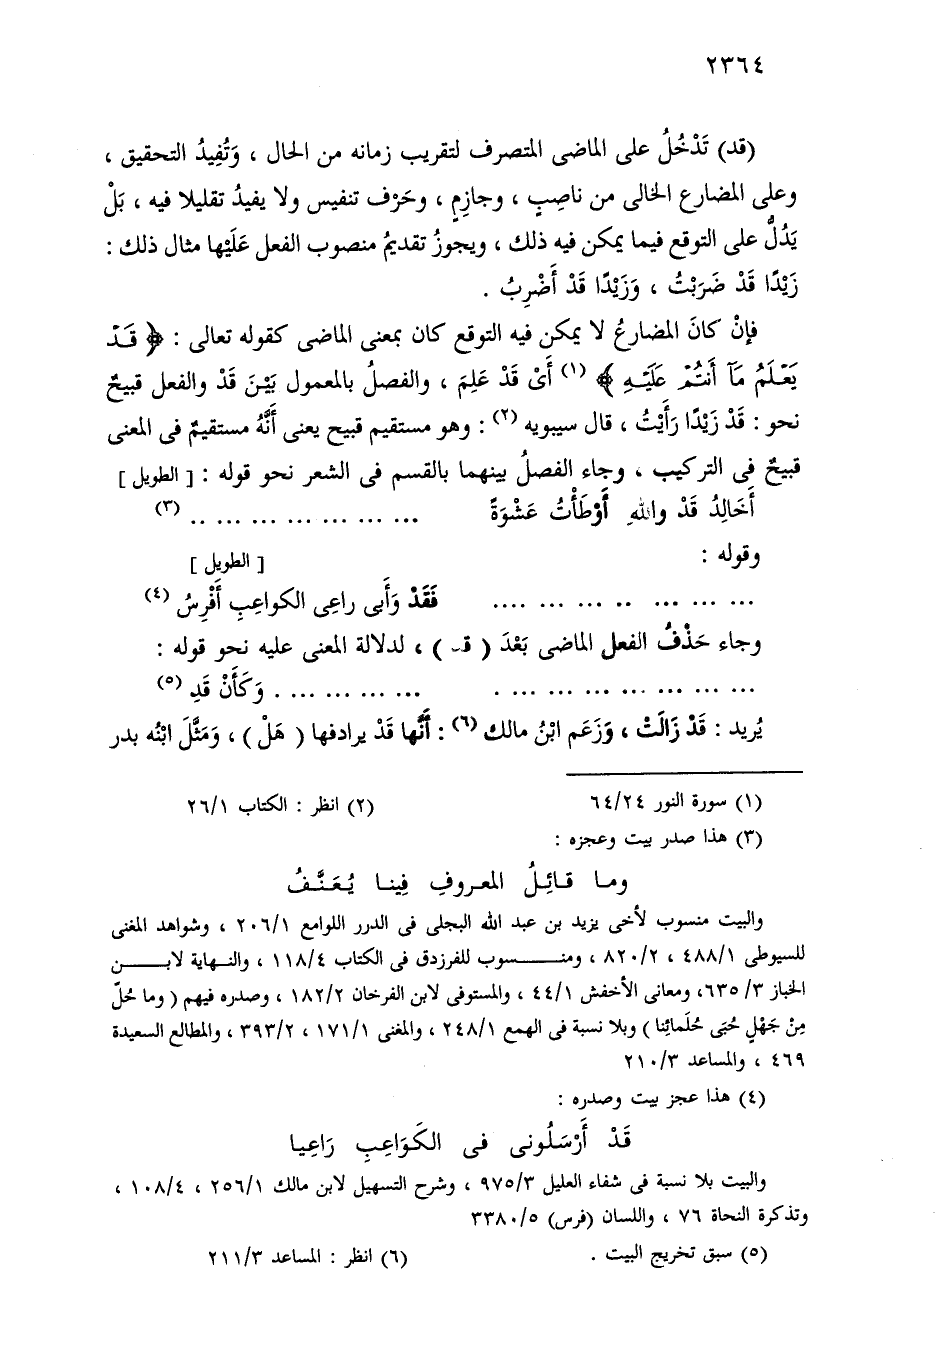 ٢٣٦٤
(قد) تَدْخُلُ على الماضى المتصرف لتقريب زمانه من الحال ، وَتُفِيدُ التحقيق ،
وعلى المضارع الخالى من ناصِبٍ ، وجازِمٍ ، وحَرْف تنفيس ولا يفيدُ تقليلا فيه ، بَلْ
يَدُلُّ على التوقع فيما يمكن فيه ذلك ، ويجوزُ تقديمُ منصوب الفعل عَلَيْها مثال ذلك :
زَيْدًا قَدْ ضَرَبْتُ ، وَزَيْدًا قَدْ أَضْرِبُ .
فإنْ كانَ المضارعُ لا يمكن فيه التوقع كان بمعنى الماضى كقوله تعالى : ﴿ قَدْ
يَعْلَمُ مَآ أَنتُمْ عَلَيْهِ ﴾ (١) أَىْ قَدْ عَلِمَ ، والفصلُ بالمعمول بَيْنَ قَدْ والفعل قبيحٌ
نحو : قَدْ زَيْدًا رَأَيْتُ ، قال سيبويه (٢) : وهو مستقيم قبيح يعنى أَنَّهُ مستقيمٌ فى المعنى
قبيحٌ فى التركيب ، وجاء الفصلُ بينهما بالقسم فى الشعر نحو قوله : [ الطويل ]
أَخَالِدُ قَدْ واللهِ أَوْطَأْتُ عَشْوَةً ... ... ... ... ... ... .. (٣)
وقوله : [ الطويل ]
... ... ... .. ... ... .... فَقَدْ وَأَبى راعِى الكواعِبِ أَفْرِسُ (٤)
وجاء حَذْفُ الفعل الماضى بَعْدَ ( قـ ) ، لدلالة المعنى عليه نحو قوله :
... ... ... ... ... ... ... . ... ... ... ... . وَكَأَنْ قَدِ (٥)
يُريد : قَدْ زَالَتْ ، وَزَعَم ابْنُ مالك (٦) : أَنَّها قَدْ يرادفها ( هَلْ ) ، وَمَثَّلَ ابْنُه بدر
(١) سورة النور ٦٤/٢٤ (٢) انظر : الكتاب ٢٦/١
(٣) هذا صدر بيت وعجزه :
وما قائِلُ المعروفِ فِينا يُعَنَّفُ
والبيت منسوب لأخى يزيد بن عبد الله البجلى فى الدرر اللوامع ٢٠٦/١ ، وشواهد المغنى
للسيوطى ٤٨٨/١ ، ٨٢٠/٢ ، ومنسوب للفرزدق فى الكتاب ١١٨/٤ ، والنهاية لابن
الخباز ٣/ ٦٣٥، ومعانى الأخفش ٤٤/١ ، والمستوفى لابن الفرخان ١٨٢/٢ ، وصدره فيهم ( وما حُلّ
مِنْ جَهْلٍ حُبَى حُلَمائِنا ) وبلا نسبة فى الهمع ٢٤٨/١ ، والمغنى ١٧١/١ ، ٣٩٣/٢ ، والمطالع السعيدة
٤٦٩ ، والمساعد ٢١٠/٣
(٤) هذا عجز بيت وصدره :
قَدْ أَرْسَلُونى فى الكَوَاعِبِ رَاعِيا
والبيت بلا نسبة فى شفاء العليل ٩٧٥/٣ ، وشرح التسهيل لابن مالك ٢٥٦/١ ، ١٠٨/٤ ،
وتذكرة النحاة ٧٦ ، واللسان (فرس) ٣٣٨٠/٥
(٥) سبق تخريج البيت . (٦) انظر : المساعد ٢١١/٣